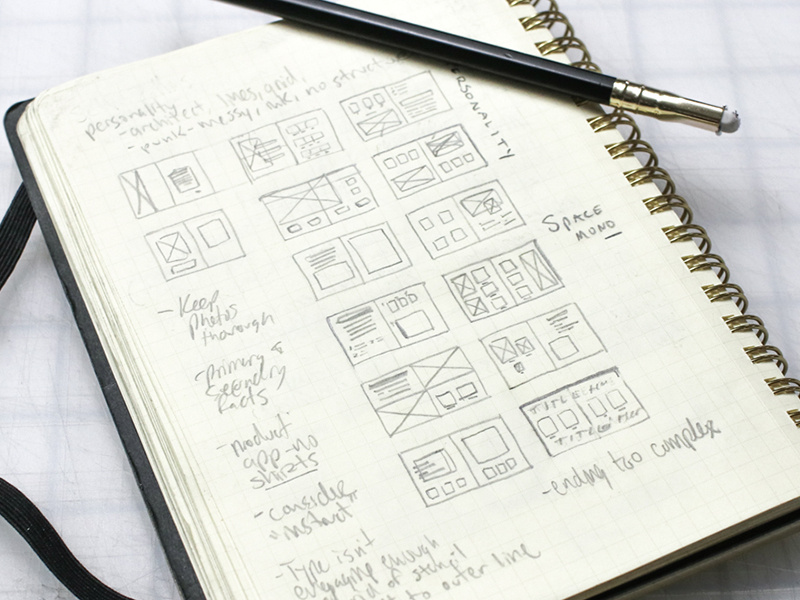 personality
- architect, lines, grid,
- punk-messy, ink, no structure
PERSONALITY
SPACE
MONO
- Keep
photos
thorough
- primary &
secondary
facts
- product
app-no
shirts
- consider
instant
TITLE:
TITLE:
- ending too complex
- Type isn't
engaging enough
rid of stencil
to outer line